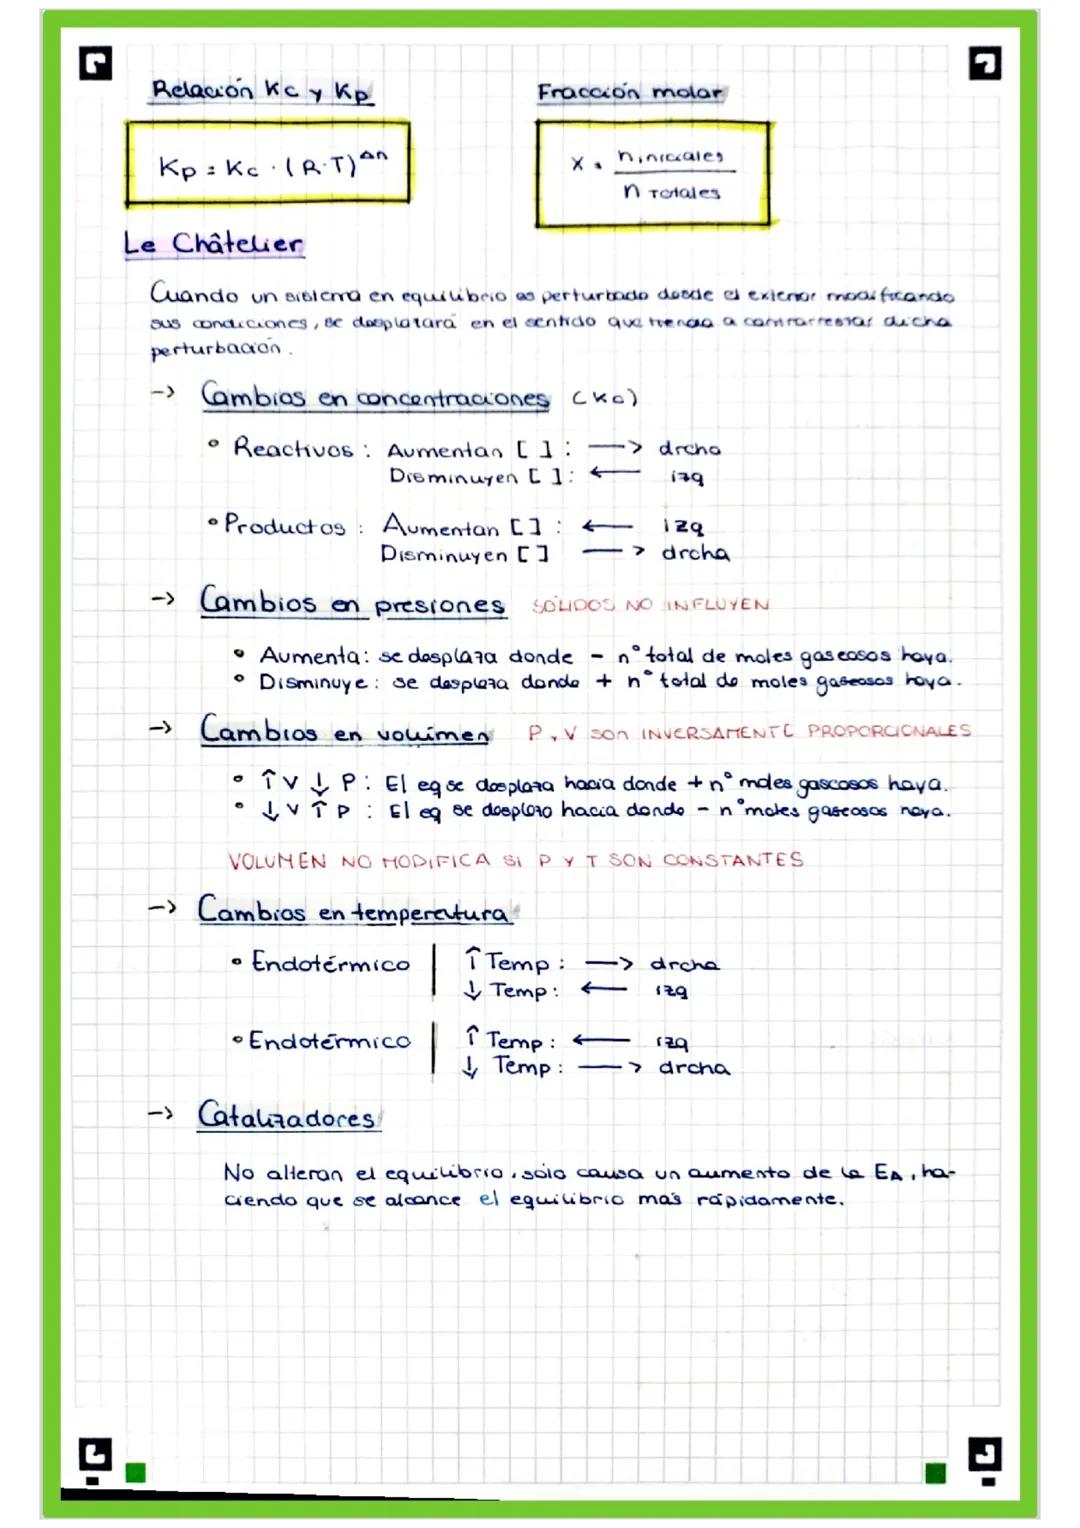 Relación Kc y Kp
Fracción molar
Kp = Kc · (R·T)^Δn
X = n iniciales / n Totales
Le Châtelier
Cuando un sistema en equilibrio es perturbado desde el exterior modificando
sus condiciones, se desplazará en el sentido que tienda a contrarrestar dicha
perturbación.
-> Cambios en concentraciones (Kc)
• Reactivos: Aumentan [ ]: → drcha
Disminuyen [ ]: ← izq
• Productos: Aumentan [ ]: ← izq
Disminuyen [ ] → drcha
-> Cambios en presiones SÓLIDOS NO INFLUYEN
• Aumenta: se desplaza donde - nº total de moles gaseosos haya.
• Disminuye: se desplaza donde + nº total de moles gaseosos haya.
-> Cambios en volúmen P, V SON INVERSAMENTE PROPORCIONALES
• ↑ V ↓ P: El eq se desplaza hacia donde + nº moles gaseosos haya.
• ↓ V ↑ P: El eq se desplaza hacia donde - nº moles gaseosos haya.
VOLUMEN NO MODIFICA SI P Y T SON CONSTANTES
-> Cambios en temperatura
• Endotérmico | ↑ Temp: → drcha
↓ Temp: ← izq
• Endotérmico | ↑ Temp: ← izq
↓ Temp: → drcha
-> Catalizadores
No alteran el equilibrio, sólo causa un aumento de la EA, ha-
ciendo que se alcance el equilibrio más rápidamente.